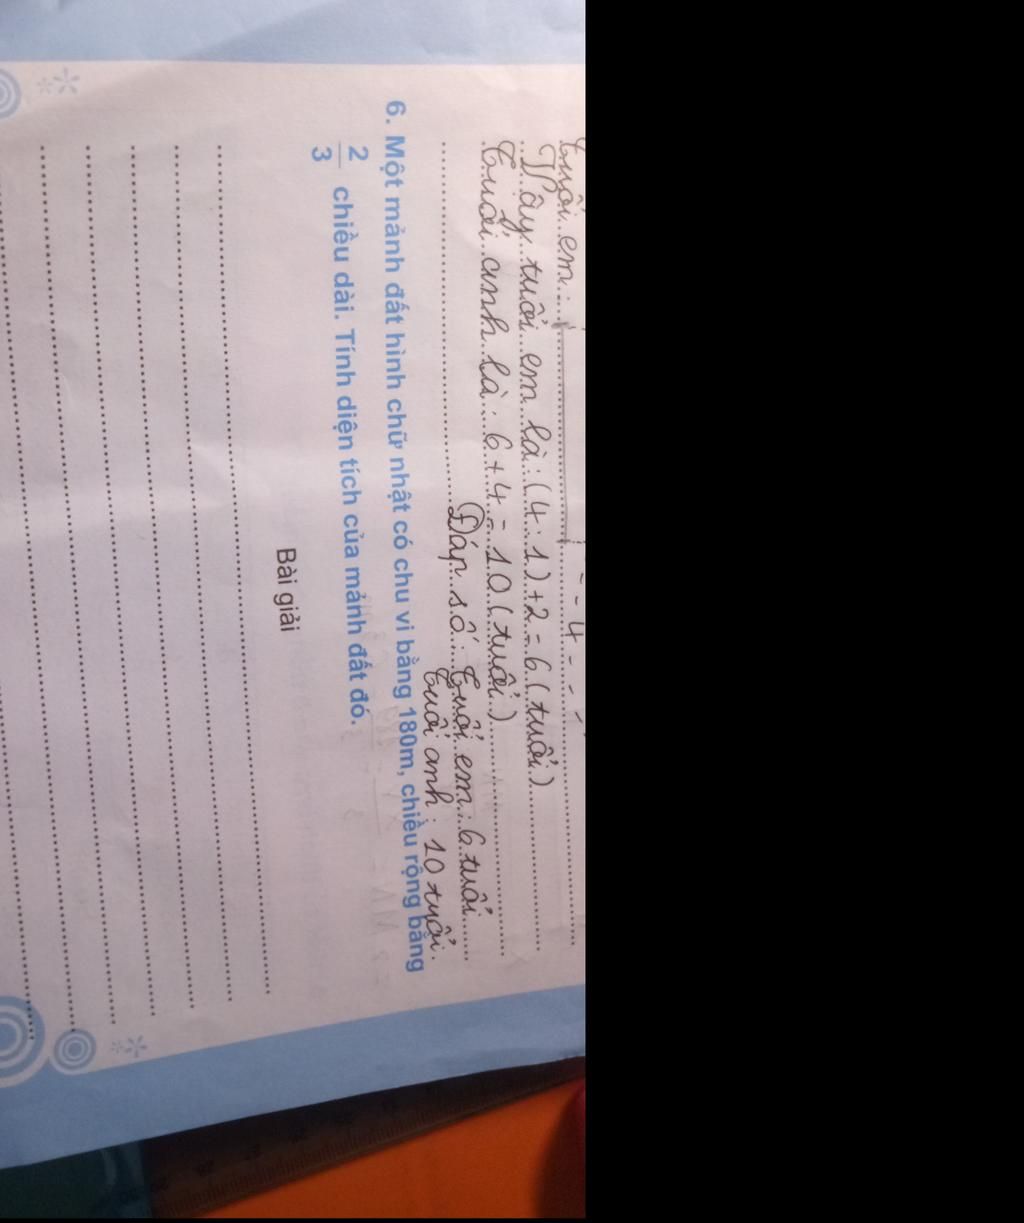 tuổi em:
Vậy tuổi em là: (4:1)+2=6(tuổi)
tuổi anh là: 6+4=10(tuổi)
Đáp số: tuổi em: 6 tuổi
tuổi anh: 10 tuổi.
6. Một mảnh đất hình chữ nhật có chu vi bằng 180m, chiều rộng bằng
2/3 chiều dài. Tính diện tích của mảnh đất đó.
Bài giải